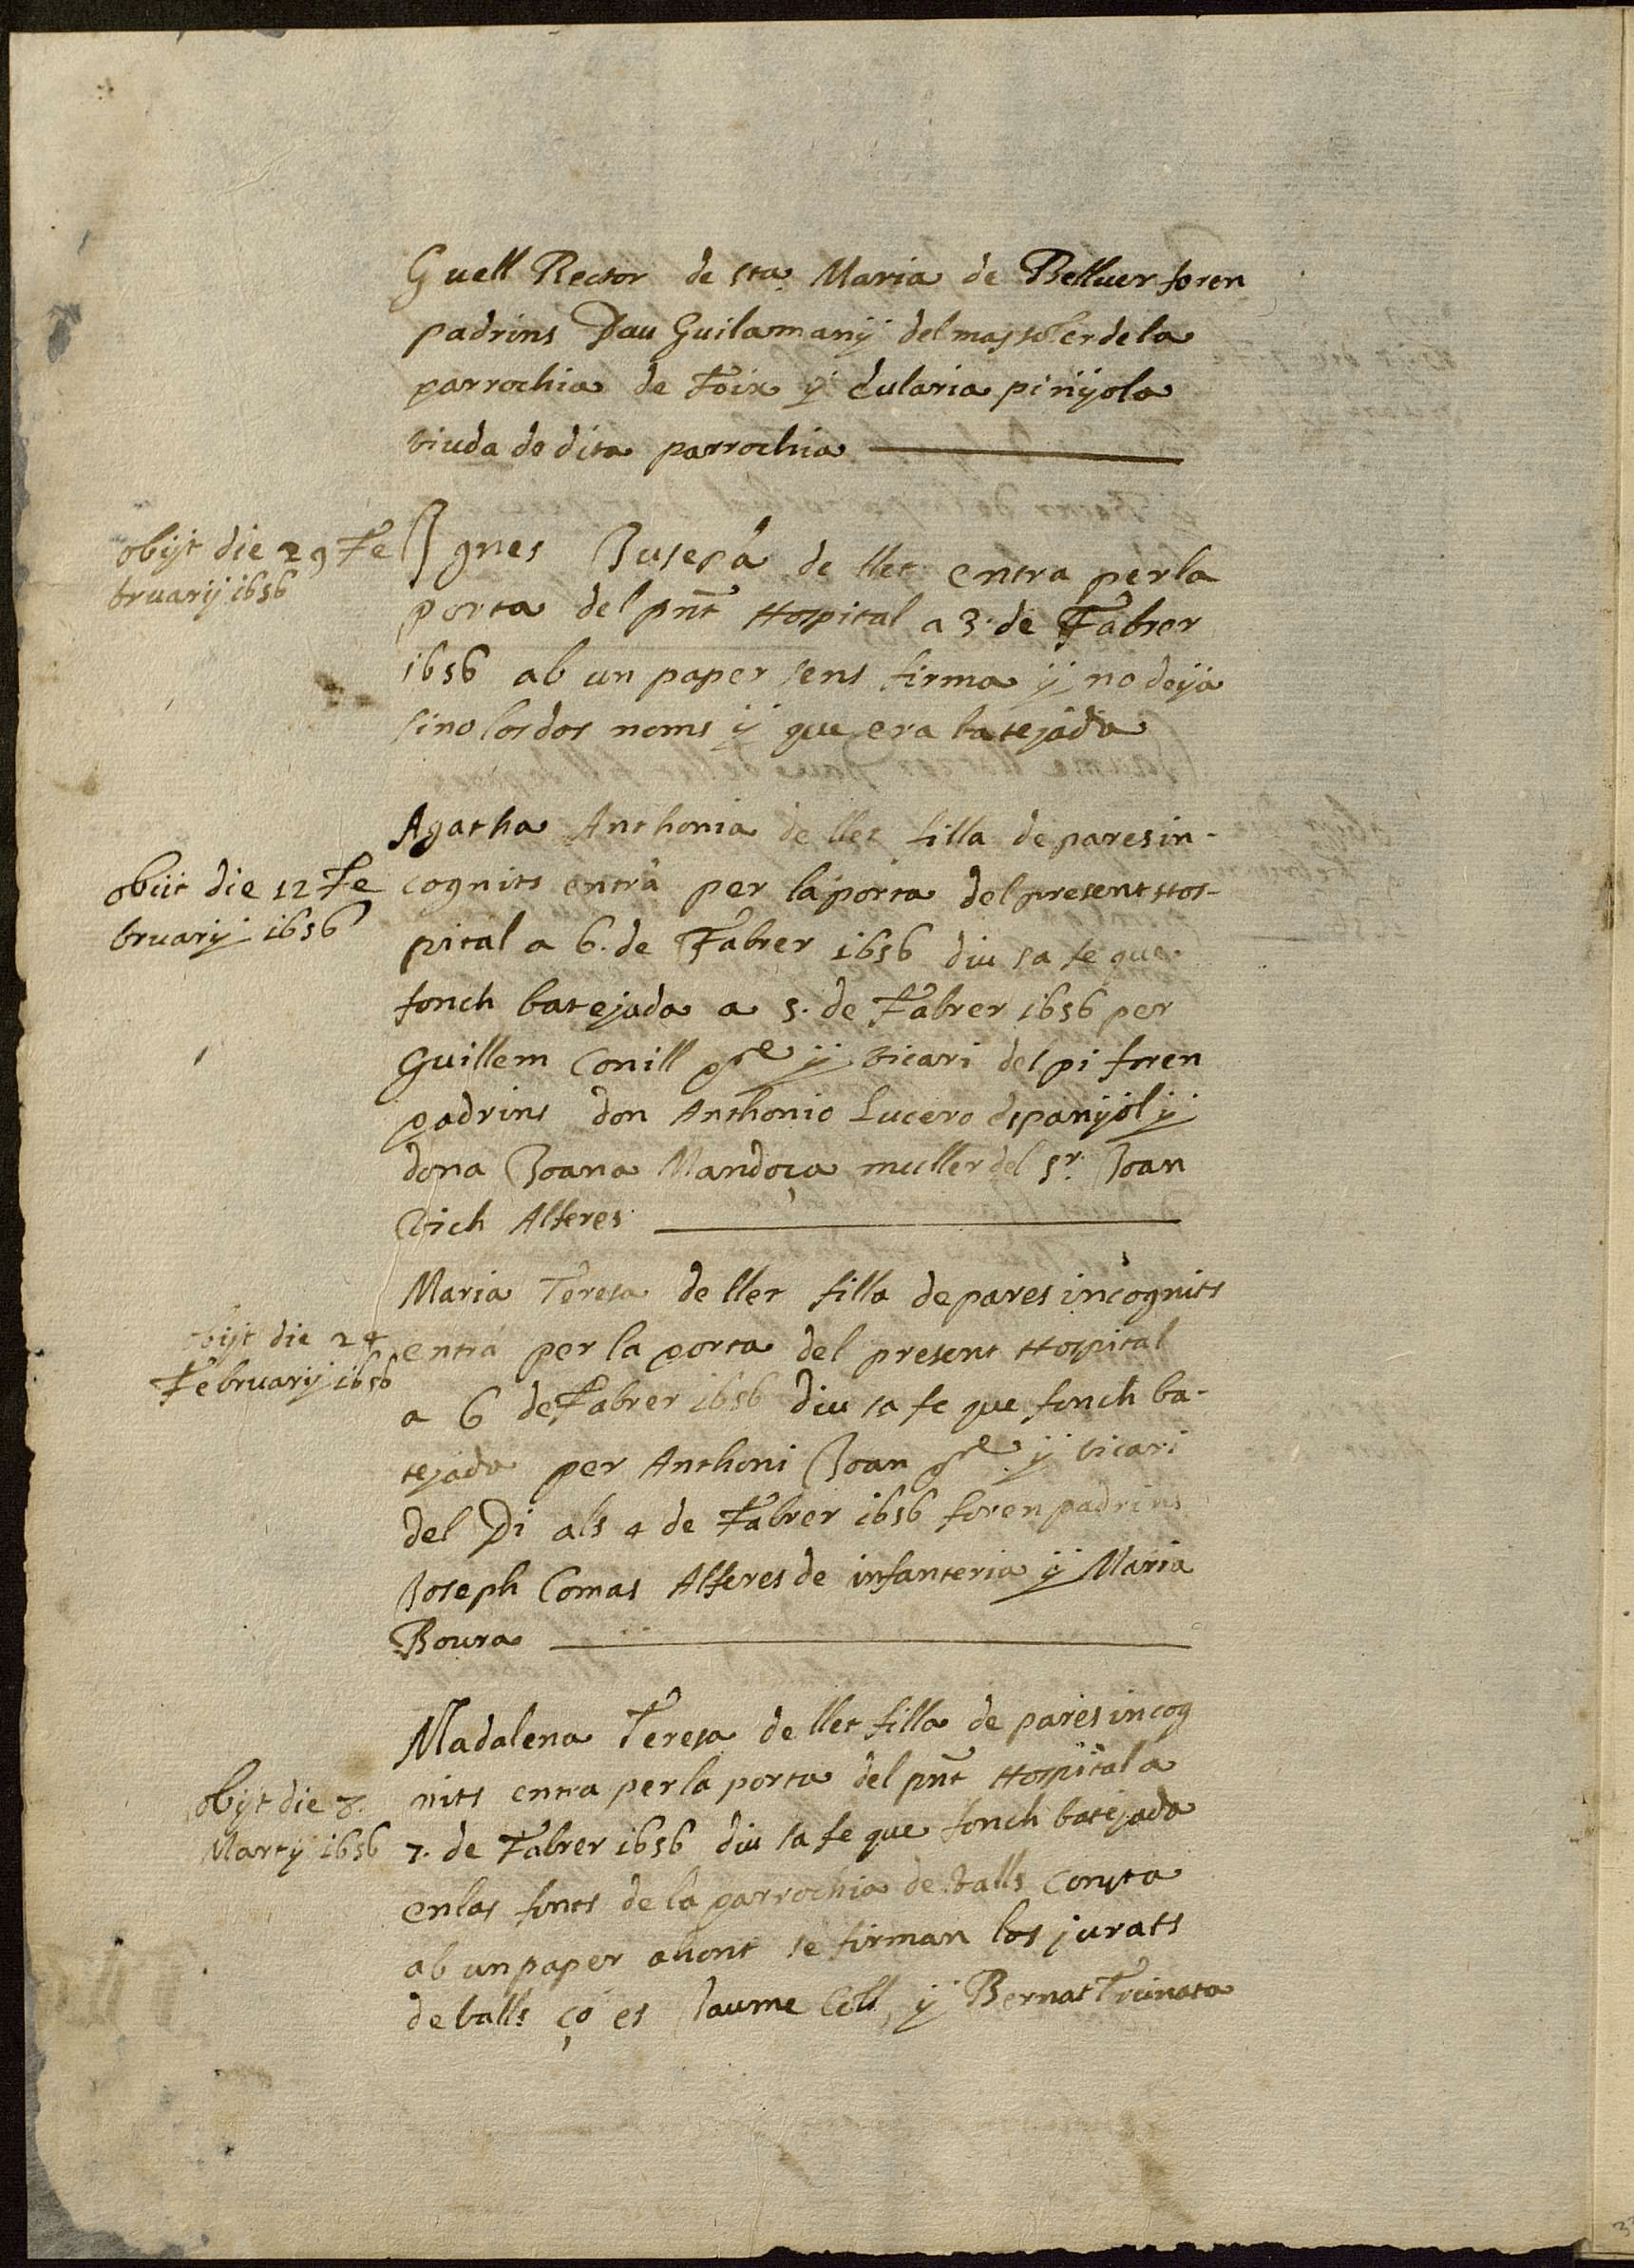 Guell Rector de sta. Maria de Bellver foren
padrins Pau Guilamany del mas soler de la
parrochia de Foix y Eularia pinyola
viuda de dita parrochia
obijt die 29 Fe
bruarij 1656
Ignes Jusepa de llet entra per la
porta del pnt Hospital a 3. de Fabrer
1656 ab un paper sens firma y no deya
sino los dos noms y que era batejada
Agatha Anthonia de llet filla de pares in-
obiit die 12 Fe
bruarij 1656
cognits entrà per la porta del present Hos-
pital a 6. de Fabrer 1656 diu sa fe que
fonch batejada a 5. de Fabrer 1656 per
Guillem Conill pre y vicari del pi foren
padrins don Anthonio Lucero espanyol y
dona Joana Mandoça muller del Sr. Joan
Vich Alferes
Maria Teresa de llet filla de pares incognits
obijt die 24
Februarij 1656
entrà per la porta del present Hospital
a 6 de Fabrer 1656 diu sa fe que fonch ba-
tejada per Anthoni Joan pre y vicari
del Pi als 4 de Fabrer 1656 foren padrins
Joseph Comas Alferes de infanteria y Maria
Boura
Madalena Teresa de llet filla de pares incog
obijt die 8.
Martij 1656
nits entra per la porta del pnt Hospital a
7. de Fabrer 1656 diu sa fe que fonch batejada
en las fonts de la parrochia de Valls consta
ab un paper ahont se firman los jurats
de valls ço es Jaume Coll y Bernat